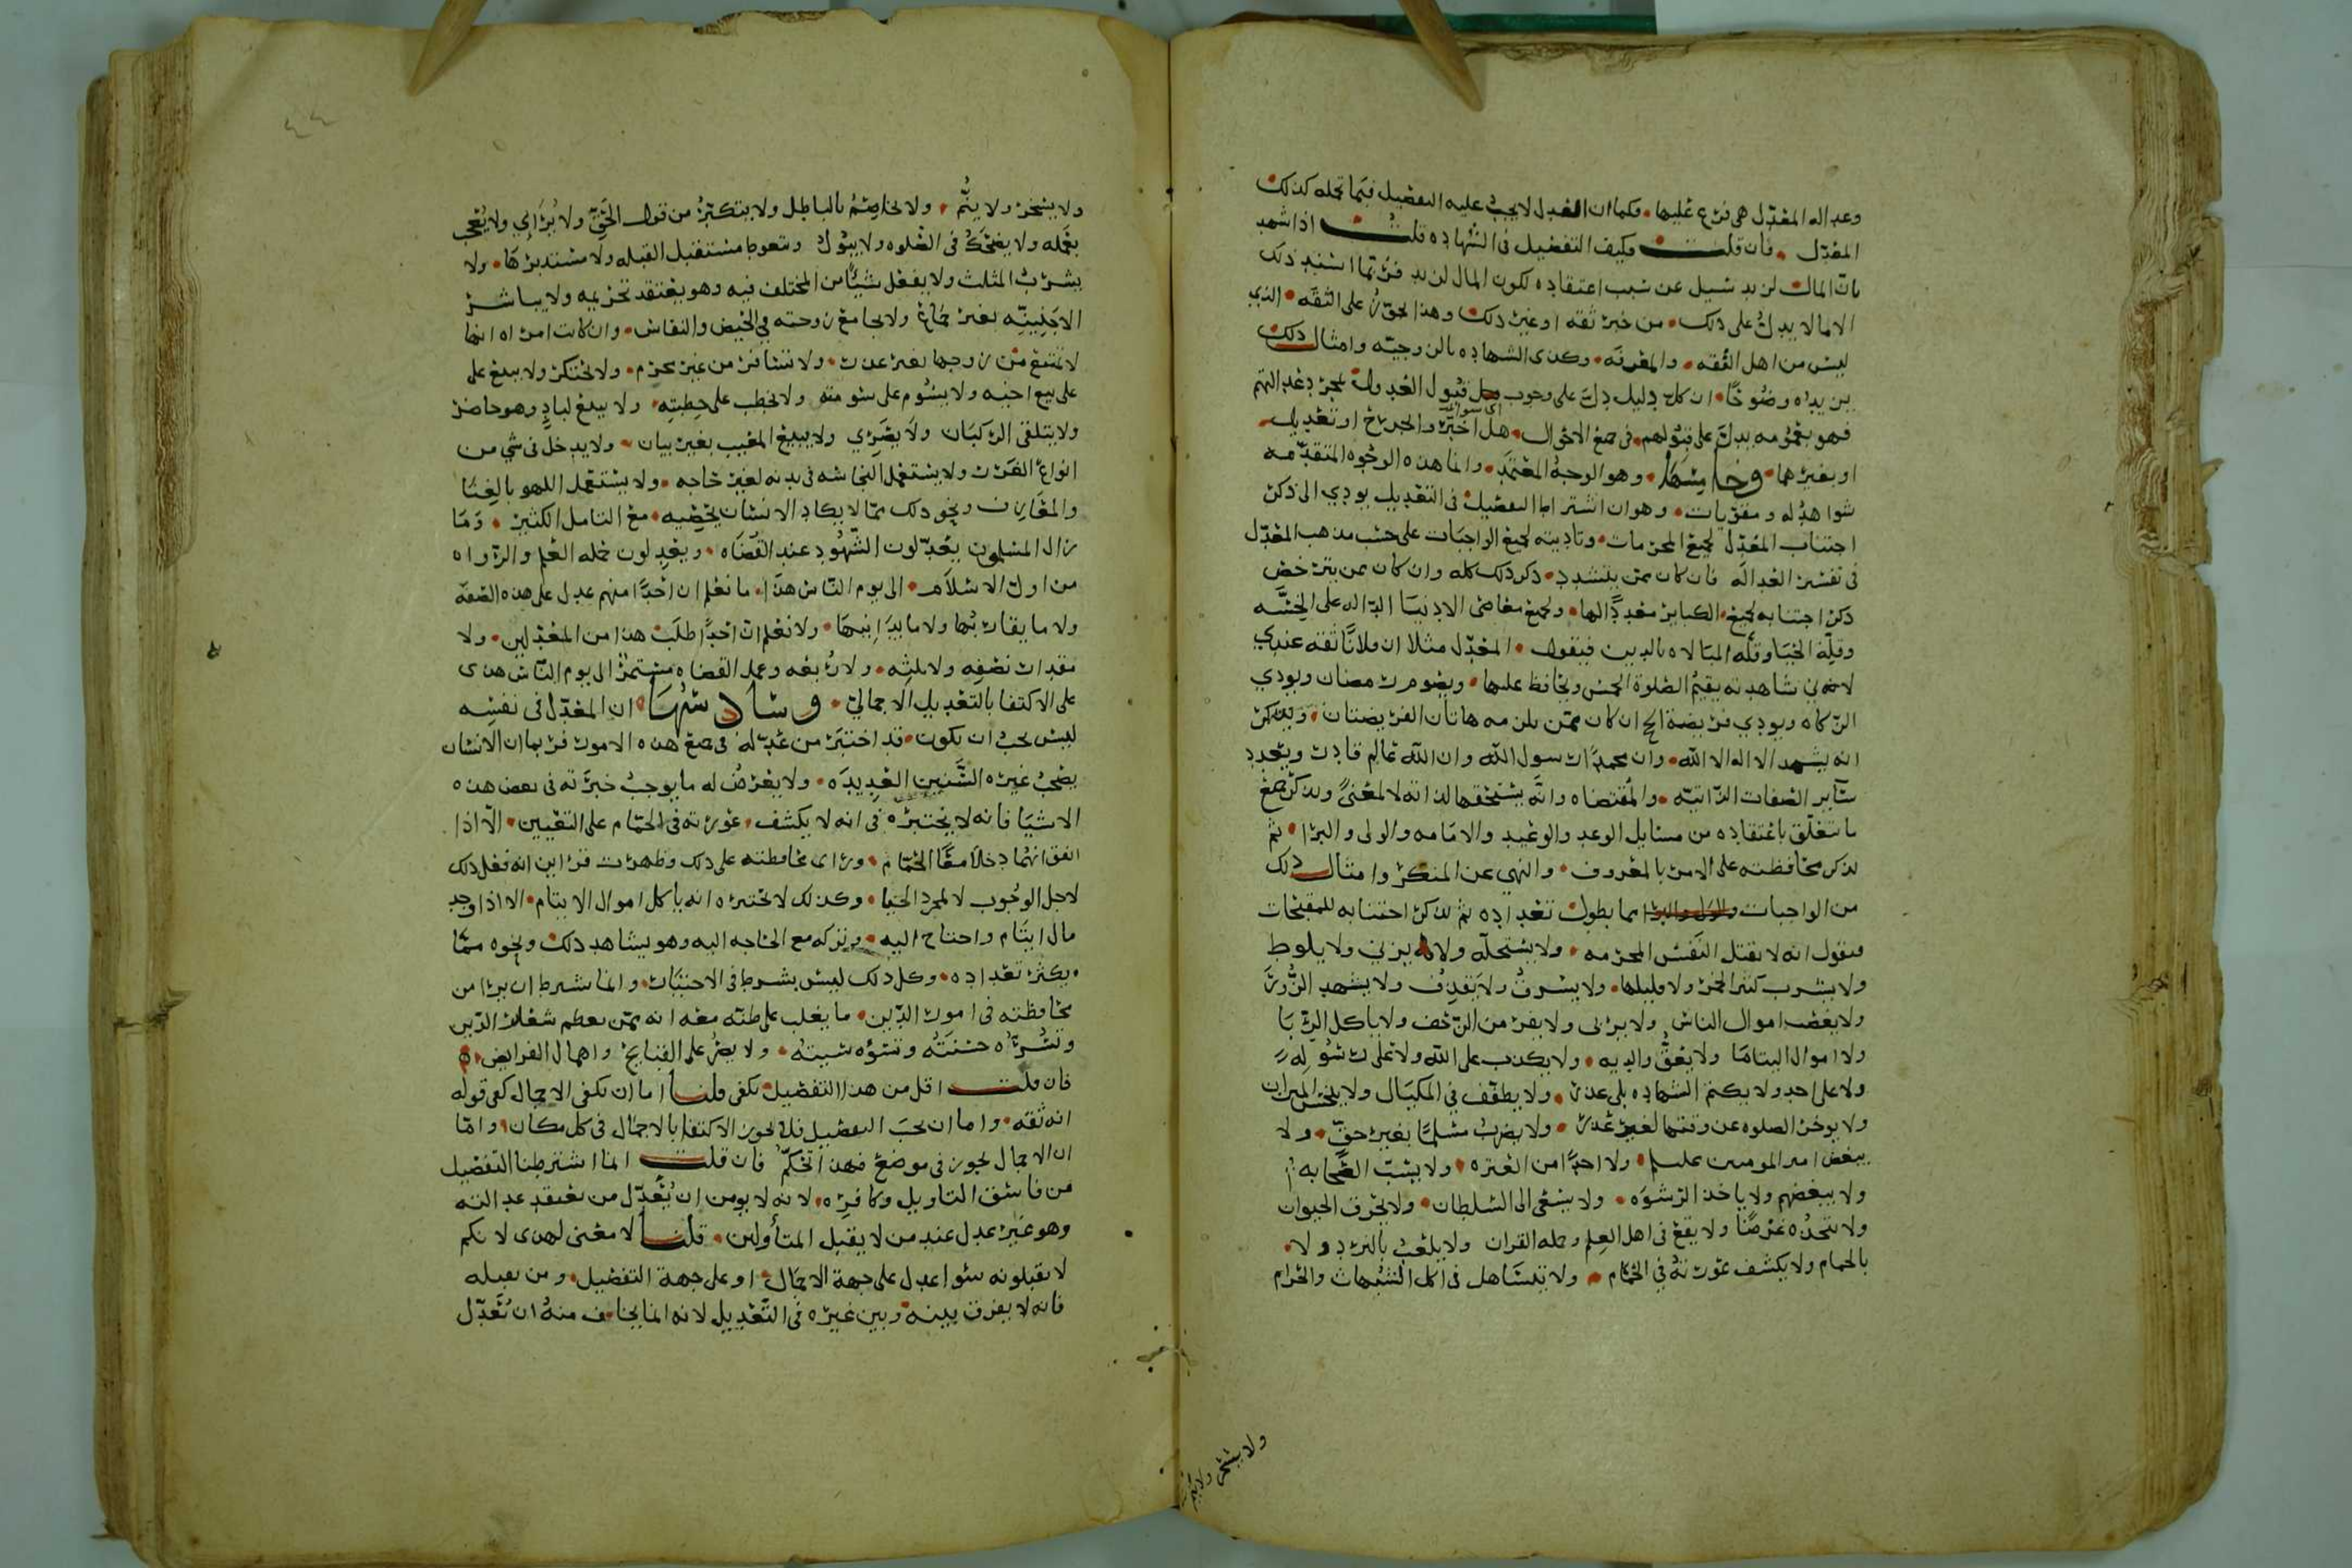 وعداله المعدّل هي فرع عليها. فكما ان العدل لا يجب عليه التفصيل فيما تحمله كذلك
المعدّل. فان قلت فكيف التفصيل في الشهاده قلت اذا شهد
بانّ المال لزيد سيل عن سبب اعتقاده لكون المال لزيد فربّما اسند ذلك
الا ما لا يدلّ على ذلك. من خبر ثقه او غير ذلك وهذا يجوز على الثقه. الذي
ليس من اهل الفقه. والمعرفه. وكذى الشهاده بالزوجيّه وامثال ذلك
يزيده وضوحًا. ان كل دليل دلّ على وجوب قبول العدول بمجرد عدالتهم
فهو بعمومه يدلّ على قبولهم. في جميع الاخوال. هل اخبروا بجرح او تعديل.
اي سوا
او بغيرهما. وخامسها. وهو الوجه المعتمد. وانما هذه الوجوه المتقدّمه
شواهد له ومقوّيات. وهو ان اشتراط التفصيل في التعديل يودي الى ذكر
اجتناب المعدّل لجميع المحرمات. وتاديته لجميع الواجبات على حسب مذهب المعدّل
في تفسير العداله فان كان ممن يتشدد. ذكر ذلك كله وان كان ممن يترخص
ذكر اجتنابه لجميع الكباير معددًا لها. ولجميع معاصي الادنيا الدّاله على الخسّه
وقلّة الحيا وقلّه المبالاه بالدين فيقول. المعدّل مثلا ان فلانًا ثقه عندي
لانني شاهدته يقيم الصلوة الخمس ويحافظ عليها. ويصوم رمضان ويودي
الزكاه ويودي فريضة الحج ان كان ممّن يلزمه هاتان الفريضتان. ويذكر
انه يشهد الا اله الا الله. وان محمدًا رسول الله وان الله عالم قادر ويعدد
ساير الصفات الذاتيّه. والمقتضاه وانّه يستحقها لذاته لا لمعنىً ويذكر جميع
ما يتعلّق باعتقاده من مسايل الوعد والوعيد والامامه والولى والبرا. ثم
يذكر محافظته على الامر بالمعروف. والنهي عن المنكر وامثال ذلك
من الواجبات مما يطول تعداده ثم يذكر اجتنابه للمقبّحات
فيقول انه لا يقتل النّفس المحرمه. ولا يستحلّه ولا يزني ولا يلوط
ولا يشرب كثير الخمر ولا قليلها. ولا يسرق ولا يقذف ولا يشهد الزّور
ولا يغصب اموال الناس ولا يربي ولا يفر من الزحف ولا ياكل الرّبا
ولا اموال اليتاما ولا يعقّ والديه. ولا يكذب على الله ولا على رسوله
ولا على احد ولا يكتم الشهاده بلى عذر. ولا يطفّف في المكيال ولا يبخس الميزان
ولا يوخر الصلوه عن وقتها لغير عذر. ولا يضرب مسلمًا بغير حقّ. ولا
يبغض امير المومنين عليلم. ولا احدًا من العتره. ولا يسبّ الصّحابه
ولا يبغضهم ولا ياخذ الرّشوه. ولا يسعى الى السلطان. ولا يحرق الحيوان
ولا يتخذه غرضًا ولا يقع في اهل العلم وحمله القران ولا يلعب بالنرد ولا.
بالحمام ولا يكشف عورته في الحمّام. ولا يتساهل في اكل الشبهات والحرام
ولا يسخر ولا ينم
ولا يسخر ولا ينمّ. ولا يخاصم بالباطل ولا يتكبّر من قول الحقّ ولا يُرَاي ولا يُعجب
بعمله ولا يضحك في الصّلوه ولا يبول ويتغوط مستقبل القبله ولا مستدبرها. ولا
يشرب المثلث ولا يفعل شيئًا من المختلف فيه وهو يعتقد تحريمه ولا يباشر
الاجنبيّه بغير جماع ولا يجامع زوجته في الحيض والنفاس. وان كانت امراه انها
لا تمتنع من زوجها بغير عذر. ولا تسافر من غير محرم. ولا يحتكر ولا يبيع على
على بيع اخيه ولا يسوم على سومته ولا يخطب على خطبته. ولا يبيع لبادٍ وهو حاضر
ولا يتلقى الركبان ولا يصَرّي ولا يبيع المعيب بغير بيان. ولا يدخل في شي من
انواع الغرر ولا يستعمل النجاسه في بدنه لغير حاجه. ولا يستعمل اللهو بالغنا
والمعازف ونحو ذلك ممّا لا يكاد الانسان يحصيه. مع التامل الكثير. وما
زال المسلمون يعدّلون الشّهود عند القضاه. ويعدلون حمله العلم والرّواه
من اول الاسلام. الى يوم النّاس هذا. ما نعلم ان احدًا منهم عدل على هذه الصفه
ولا ما يقاربُها ولا ما يدانيها. ولا نعلم انّ احدًا طلب هذا من المعدّلين. ولا
مقدار نصفه ولا ثلثه. ولا ربعه وعمل القضاه مستمرّ الى يوم النّاس هذى
على الاكتفا بالتعديل الاجماليّ. وسادسُها. ان المعدّل في نفسه
ليس يجب ان يكون. قد اختبر من عدّله في جميع هذه الامور فربما ان الانسان
يصحب غيره السّنين العديده. ولا يعرض له ما يوجب خبرته في بعض هذه
الاشيا فانه لا يختبره في انه لا يكشف. عورته في الحمّام على التعيين. الّا اذا
اتفق انهما دخلا معًا الحمّام. وراى محافظته على ذلك وظهرت قراين انه فعل ذلك
لاجل الوجوب لا لمجرد الحيا. وكذلك لا يختبره انه ياكل اموال الايتام. الا اذا وجد
مال ايتام واحتاج اليه. وتركه مع الحاجه اليه وهو يشاهد ذلك ونحوه ممّا
يكثر تعداده. وكل ذلك ليس بشرط في الاختبار. وانما شرط ان يرا من
محافظته في امور الدّين. ما يغلب على ظنّه معه انه ممّن يعظم شعاير الدّين
وتسُرّه حسنته وتسوءه سيته. ولا يصرّ على القبايح واهمال الفرايض.
فان قلت اقل من هذا التفصيل يكفي قلنا اما ان يكفي الاجمال كفى قوله
انه ثقه. واما ان يجب التفصيل فلا يجوز الاكتفا بالاجمال في كل مكان. وامّا
ان الاجمال يجوز في موضع فهذا تحكّم فان قلت انما اشترطنا التفصيل
من فاسق التاويل وكافره. لانه لا يومن ان يُعدّل من يعتقد عدالته
وهو غير عدل عند من لا يقبل المتأولين. قلنا لا معنى لهذى لانكم
لا تقبلونه سوا عدل على جهة الاجمال. او على جهة التفصيل. ومن يقبله
فانه لا يفرق بينه وبين غيره في التّعديل لانه انما يخاف منه ان يُعَدّل